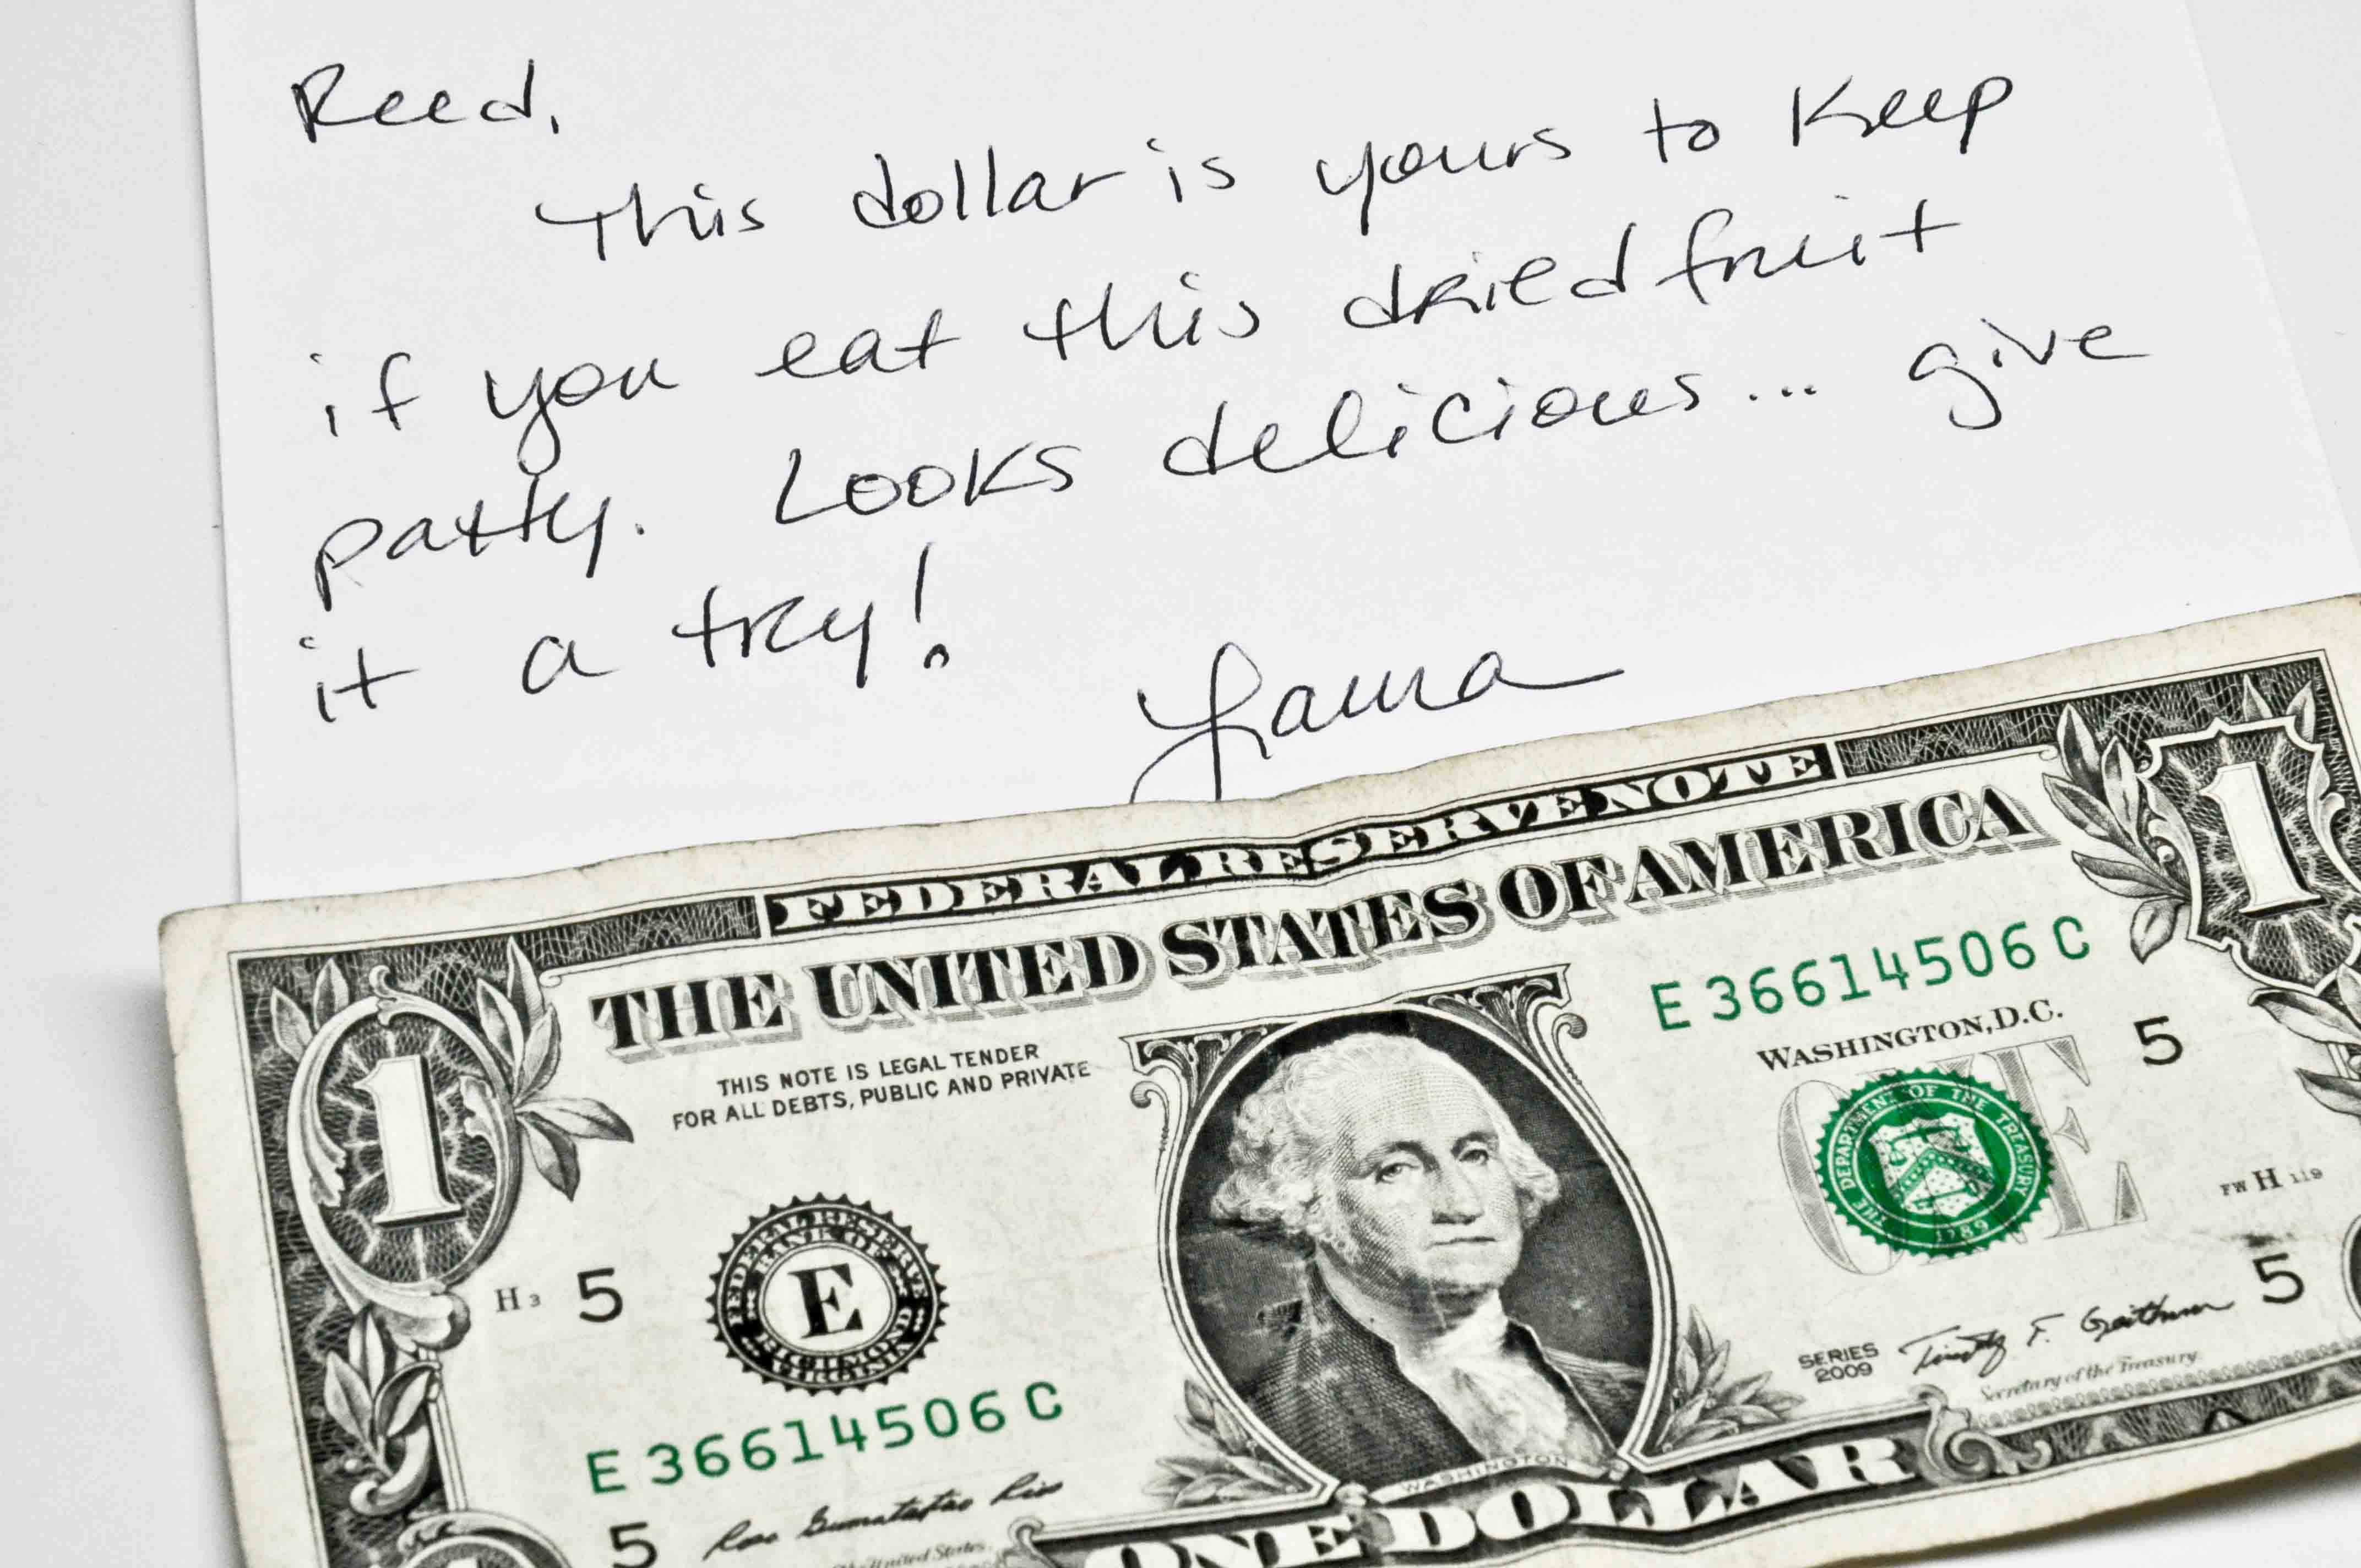 Reed,
This dollar is yours to keep
if you eat this dried fruit
patty. Looks delicious... give
it a try!
Laura
FEDERAL RESERVE NOTE
THE UNITED STATES OF AMERICA
1
1
THIS NOTE IS LEGAL TENDER
FOR ALL DEBTS, PUBLIC AND PRIVATE
E 36614506 C
WASHINGTON, D.C.
5
ONE
THE DEPARTMENT OF THE TREASURY
1789
FW H 119
H 3
5
FEDERAL RESERVE
BANK OF
RICHMOND
VIRGINIA
E
SERIES
2009
Timothy F. Geithner
5
Secretary of the Treasury.
E 36614506 C
WASHINGTON
5
Rosa Gumataotao Rios
United States.
ONE DOLLAR